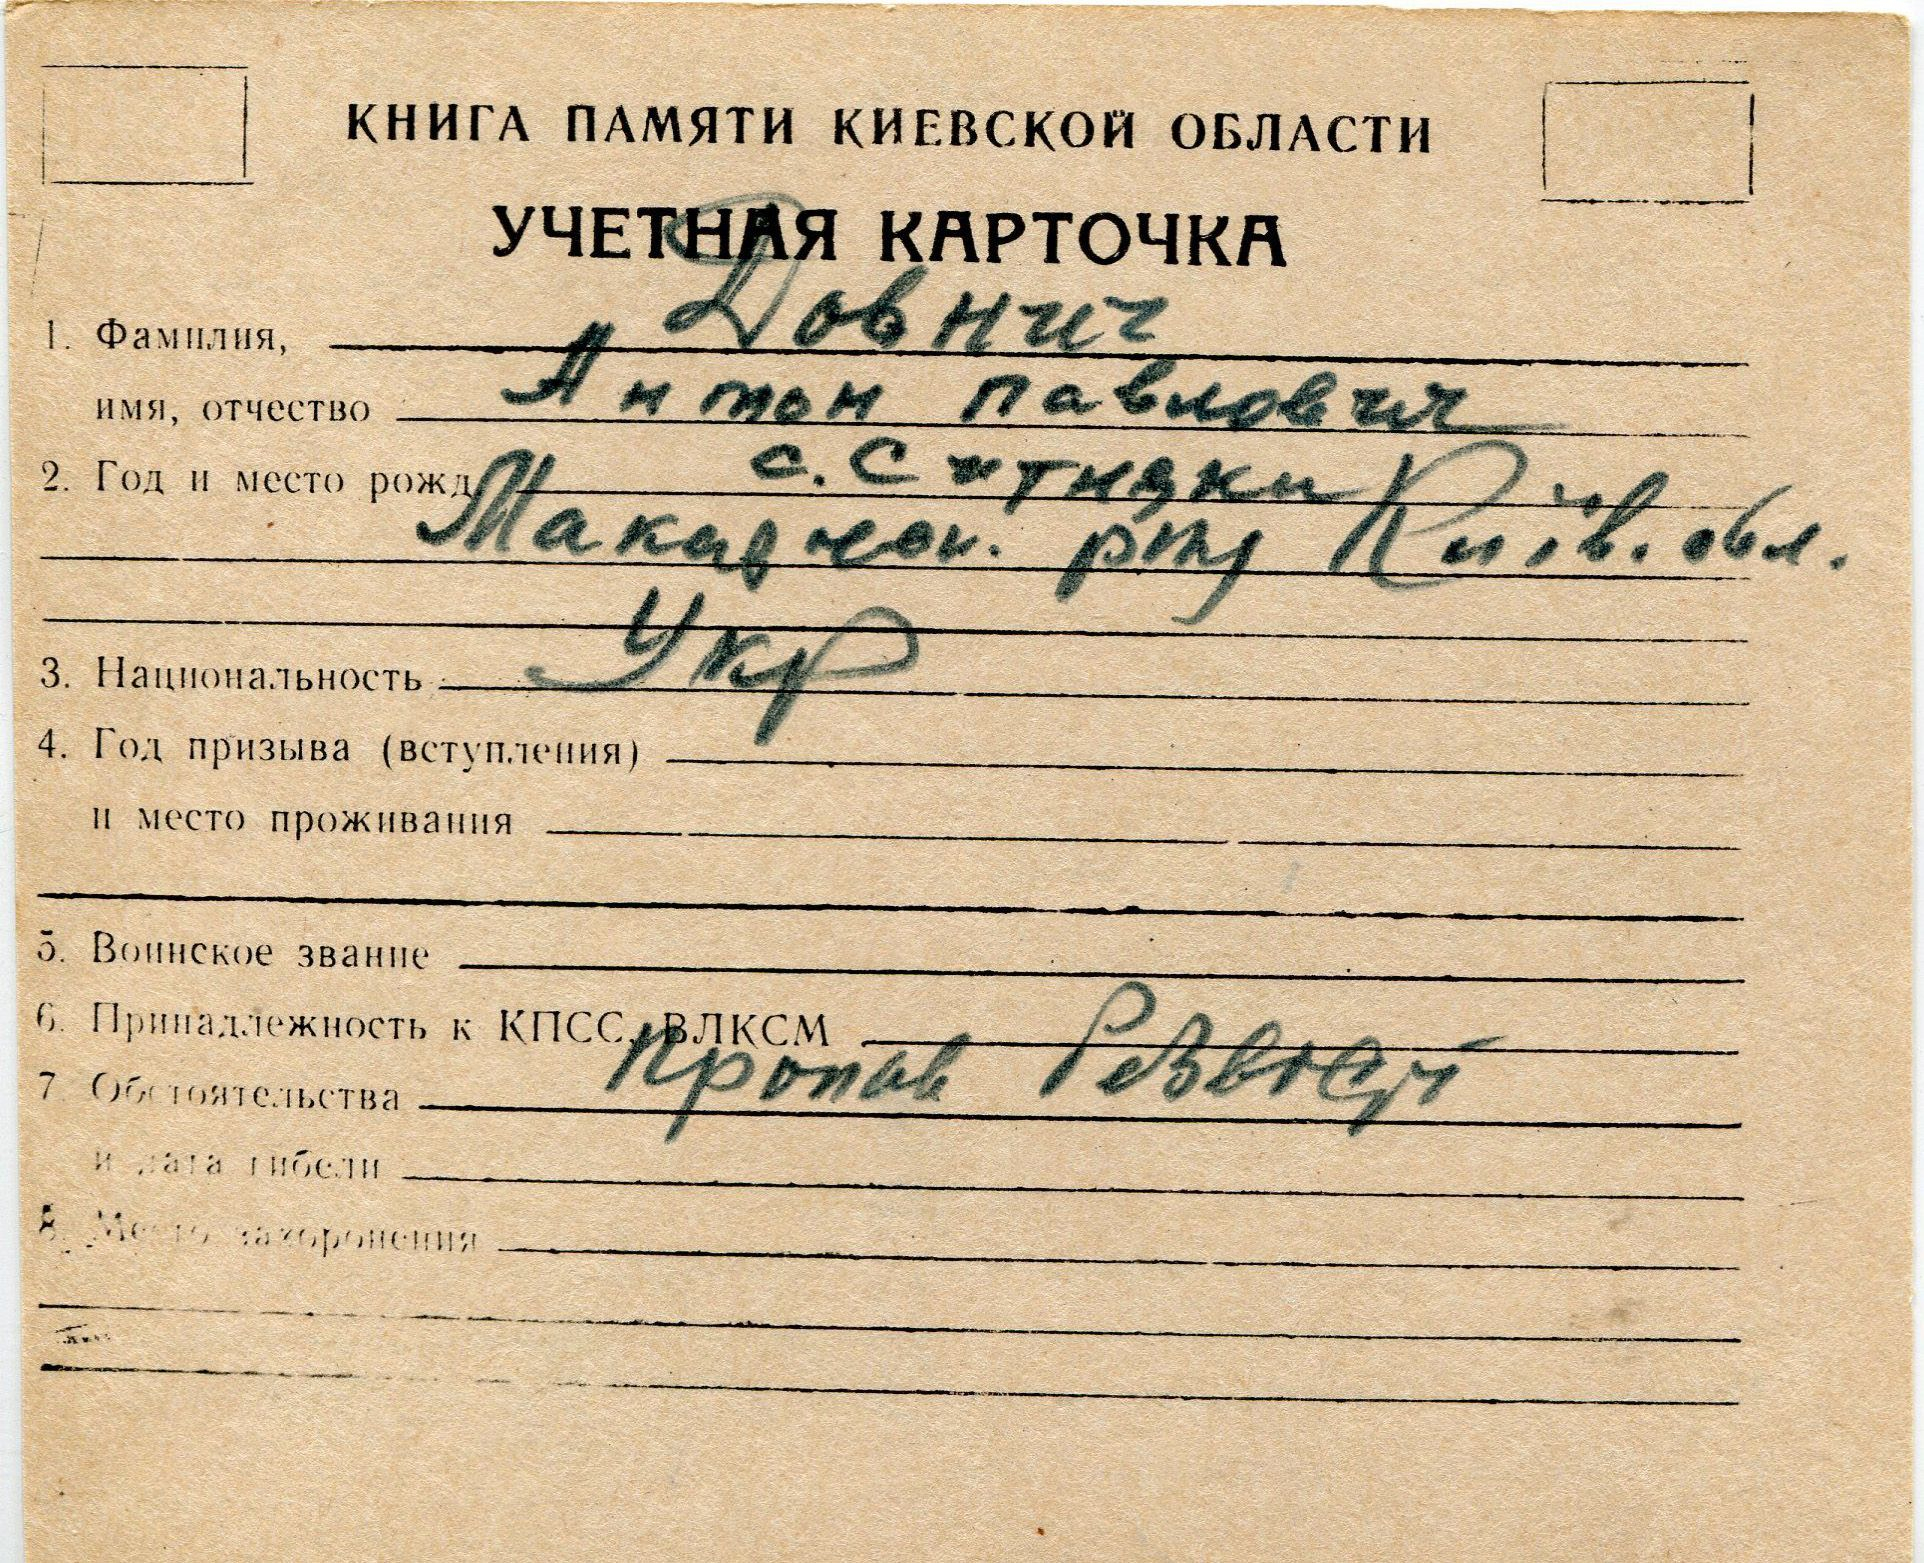 КНИГА ПАМЯТИ КИЕВСКОЙ ОБЛАСТИ
УЧЕТНАЯ КАРТОЧКА
1. Фамилия, Довнич
имя, отчество Антон Павлович
2. Год и место рожд с. Ситняки
Макар рну Київ. обл.
3. Национальность Укр
4. Год призыва (вступления)
и место проживания
5. Воинское звание
6. Принадлежность к КПСС, ВЛКСМ
7. Обстоятельства пропав
и дата гибели
8. Место захоронения